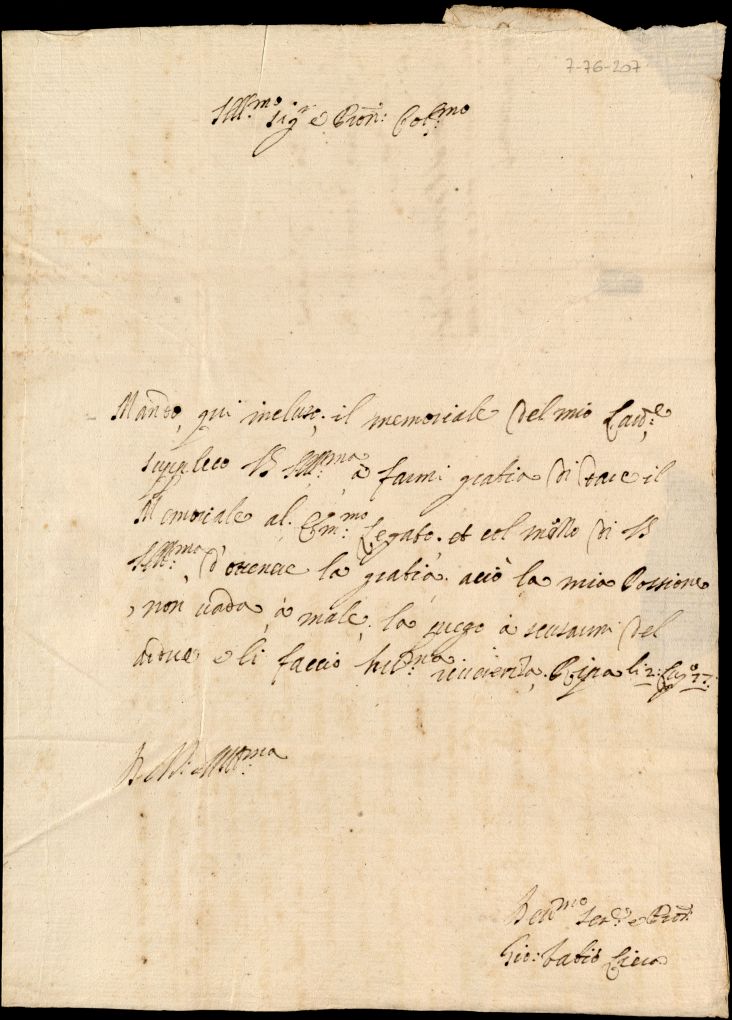 7-76-207
Ill.mo Sig.r e Pron: Col.mo
Mando, qui incluso, il memoriale del mio
supplico VS Ill.ma à farmi gratia di dare il
Memoriale al. Em.mo Legato. et col mezzo di VS
Ill.ma d'ottenere la gratia. acciò la mia Possione
non vada à male. la prego à scusarmi del
ardire e li faccio hu.ma riverenza. Ripa li 2:
Di VS: Ill.ma
Ser.e e
Gio: Fabio